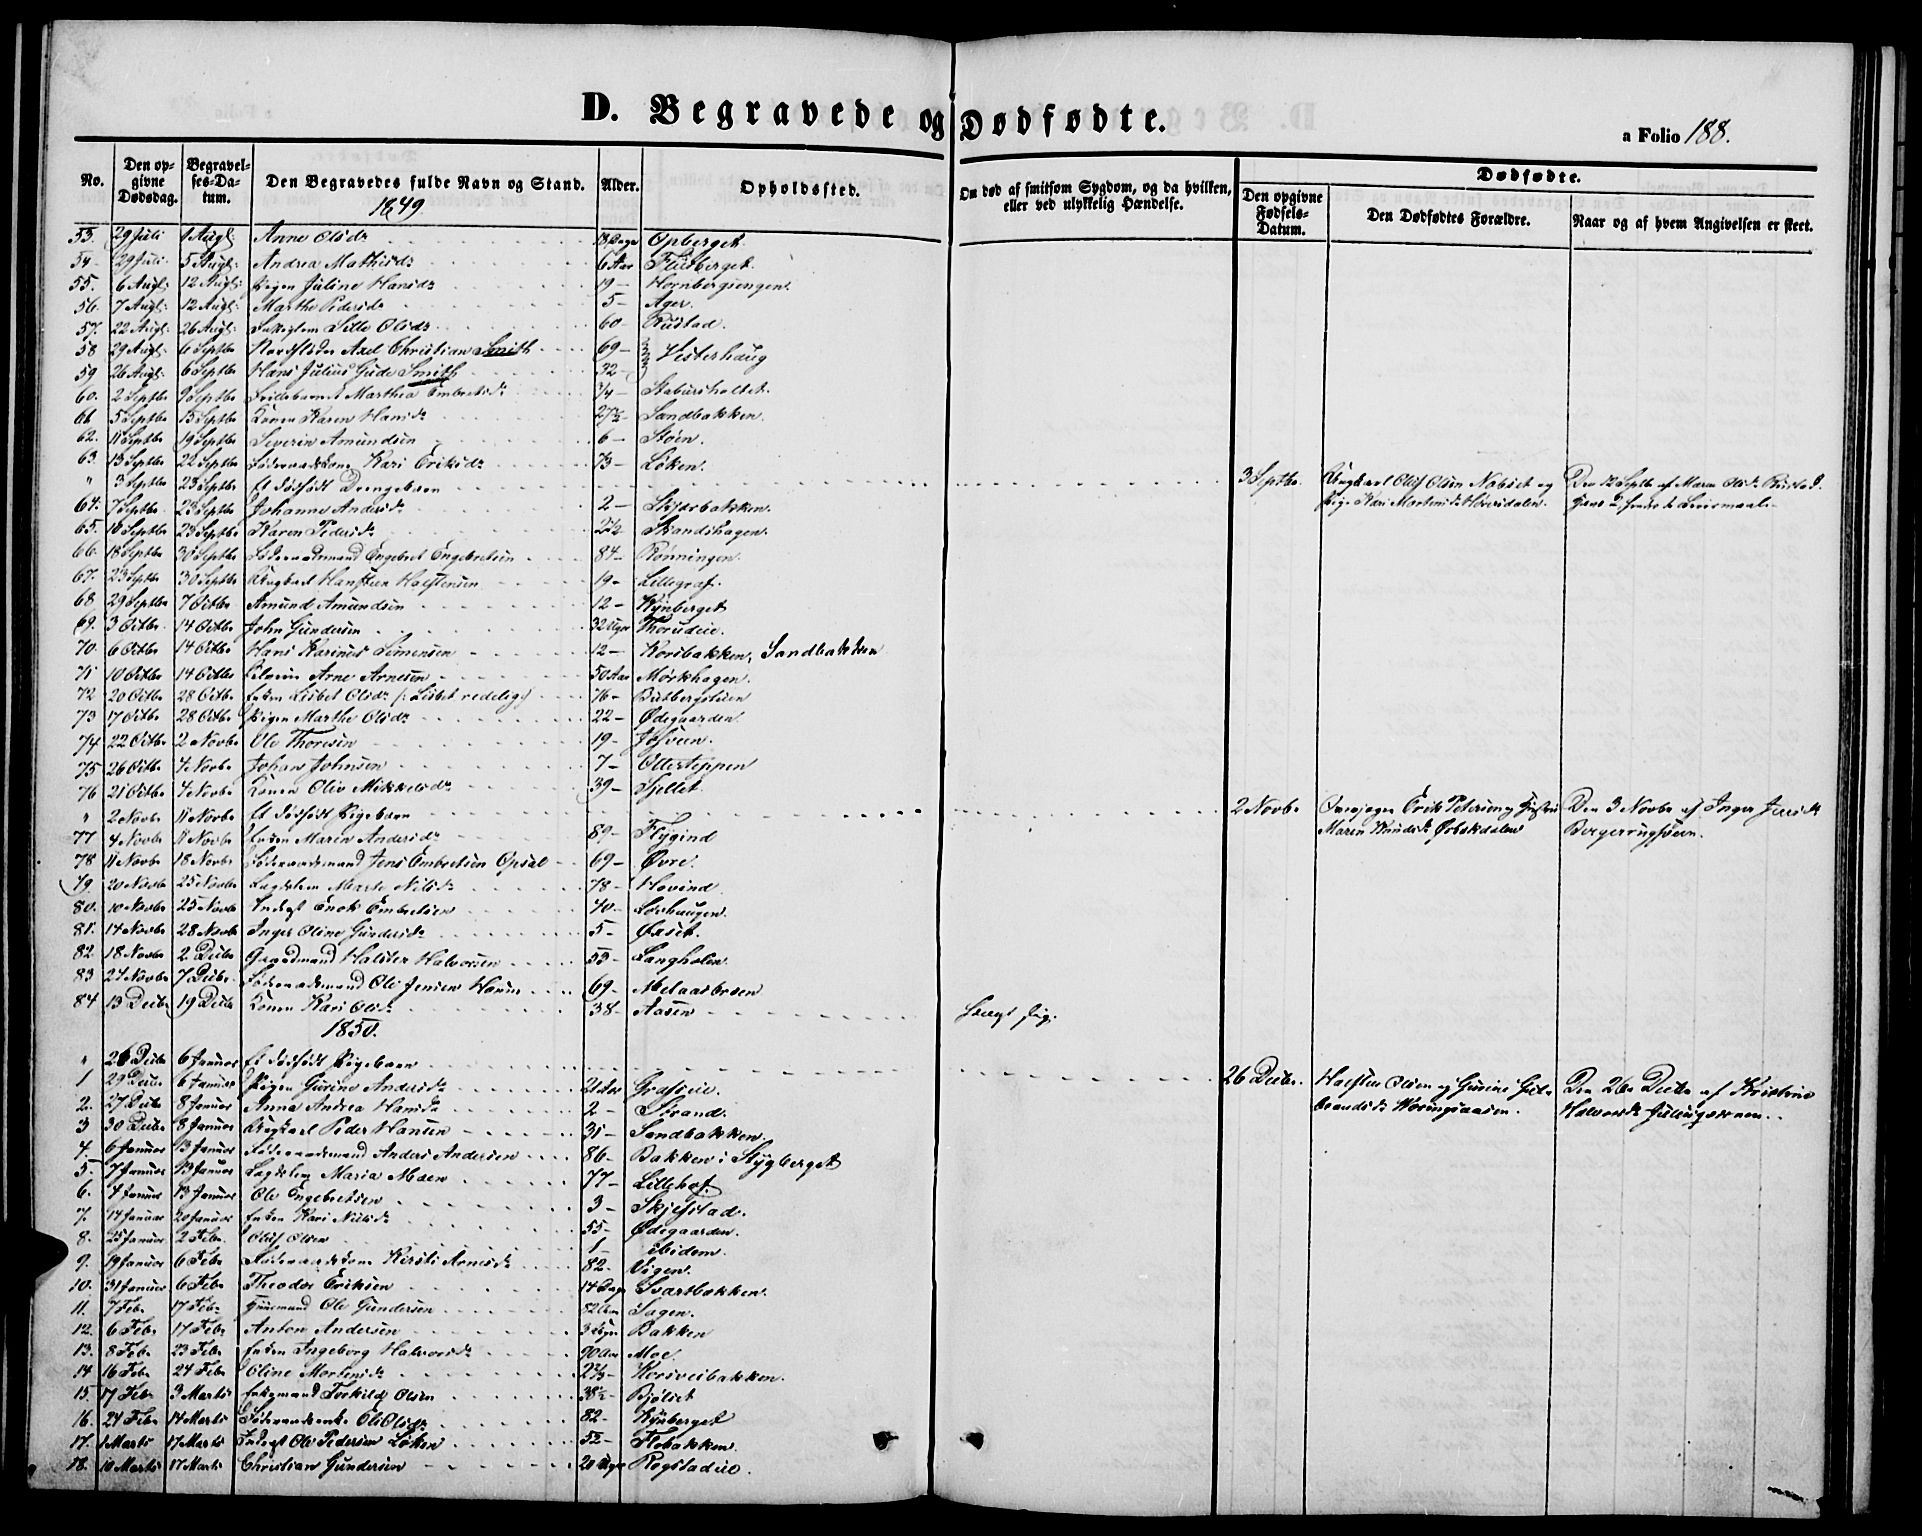 D. Begravede og Dødfødte.
a Folio 188.
No. Den opgivne Dødsdag. Begravelses-Datum. Den Begravedes fulde Navn og Stand. Alder. Opholdssted. Om død af smitsom Sygdom, og da hvilken, eller ved ulykkelig Hændelse. Dødfødte.
Den opgivne Fødsels-Datum. Den Dødfødtes Forældre. Naar og af hvem Angivelsen er skeet.
1849.
53. 29 Juli 1 Augt: Anne Olsdr 18 Dage Opberget.
54. 29 Juli 5 Augt: Andrea Mathisdr 6 Aar Flisberget.
55. 6 Augt: 12 Augt: Pigen Juline Hansdr 19 - Hornbergengen.
56. 7 Augt: 12 Augt: Marthe Pedersdr 5 - Ager.
57. 22 Augt: 26 Augt: Olsdr 60 - Rustad.
58 29 Augt: 6 Septbr Axel Christian Smith 69 - Vesterhaug
59 26 Augt: 6 Septbr Hans Julius Gude Smith 32 -
60. 2 Septbr 9 Septbr Marthea Embretsdr 3/4 - Stabursholtet.
61 5 Septbr 15 Septbr Konen Karen Hansdr 27½ - Sandbakken.
62. 11 Septbr 19 Septbr Severin Amundsen 6 - Støen.
63. 13 Septbr 22 Septbr Føderaadskone Kari Eriksdr 73 - Løken.
" 3 Septbr 23 Septbr Et dødfødt Drengebarn 3 Septbr. Ungkarl Olof Olsen Nabset og Den 12 Septbr af Maren Olsdr Rustad.
Pig. Kari Martinsdr
64. 7 Septbr 23 Septbr Johanne Andersdr 2 - Skjærbakken.
65. 18 Septbr 23 Septbr Karen Pedersdr 2½ Strandshagen.
66. 18 Septbr 30 Septbr Føderaadsmand Engebret Engebretsen 84 - Rønningen.
67. 23 Septbr 30 Septbr Ungkarl Halstensen 19 - Lillegraf.
68 29 Septbr 7 Octbr Amund Amundsen 12 - Kynberget
69. 3 Octbr 14 Octbr John Gundersen 32 Uger Thorudeie.
70. 6 Octbr 14 Octbr Hans Karinus Simensen 12 - Korsbakken, Sandbakken
71 10 Octbr 14 Octbr Arne Arnesen 50 Aar Mørkhagen.
72 20 Octbr 28 Octbr Enken Lisbet Olsdr 76 -
73 17 Octbr 28 Octbr Pigen Marthe Olsdr 22 - Ødegaarden.
74 22 Octbr 2 Novbr Ole Thoresen 19 -
75 26 Octbr 4 Novbr Johan Johnsen 7 - Otterteppen
76 21 Octbr 4 Novbr Konen Oliv Mikkelsdr 39 - Fjellet.
" 2 Novbr 11 Novbr Et dødfødt Pigebarn 2 Novbr Erik Petersen og Hustru Den 3 Novbr af Inger Jensdr
Maren Knudsdr Ørbækdalen
77 4 Novbr 11 Novbr Enken Maren Andersdr 89 - Flygind
78 11 Novbr 18 Novbr Føderaadsmand Jens Embretsen Opsal 69 - Øvre.
79. 20 Novbr 25 Novbr Lægdslem Marte Nilsdr 78 - Hovind
80. 10 Novbr 25 Novbr Inderst Enok Embretsen 40 - Løvhaugen.
81. 14 Novbr 28 Novbr Inger Oline Gundersdr 5 - Øxset.
82. 18 Novbr 2 Decbr Gaardmand Halster Halvorsen 53 - Langholen.
83 27 Novbr 7 Decbr. Føderaadsmand Ole Jensen 69 - Melaasbroen
84 13 Decbr 19 Decbr Konen Kari Olsdr 38 - Aasen
1850.
" 26 Decbr 6 Januar Et dødfødt Pigebarn 26 Decbr. Halsten Olsen og Gunine Gul- Den 26de Decbr af Kristine
brandsdr Halvorsdr
1 29 Decbr 6 Januar Pigen Gurine Andersdr 21 Aar
2. 27 Decbr 8 Januar Anna Andrea Hansdr 2 - Strand.
3 30 Decbr 8 Januar Ungkarl Peder Hansen 31 - Sandbakken.
4. 6 Januar 13 Januar Føderaadsmand Anders Andersen 86 - Bakken i Stygberget
5. 7 Januar 13 Januar Lægdslem Maria Moen 77 - Lillehof.
6. 4 Januar 13 Januar Ole Engebretsen 3 - Skjefstad.
7. 14 Januar 20 Januar Enken Kari Nilsdr 55 - Ødegaarden.
8. 25 Januar 2 Febr. Oluf Olsen 1 ibidem.
9. 19 Januar 6 Febr Føderaadskone Kirsti Arnesdr 82 - Vigen.
10. 31 Januar 6 Febr Theodor Eriksen 14 Dage Svartbakken.
11. 7 Febr 17 Febr Huusmand Ole Gundersen 82 Aar Sagen.
12. 6 Febr 17 Febr Anton Andersen 3 Uger Bakken
13. 8 Febr 23 Febr Enken Ingeborg Halvorsdr 90 Aar Moe.
14 16 Febr 24 Febr Oline Mortensdr 2⅔ - Korsveibakken.
15. 17 Febr 3 Marts Enkemand Torkild Olsen 38½ - Bjølset
16. 24 Febr 14 Marts Føderaadsenke Oli Olsdr 82 - Kynberget
17. 1 Marts 17 Marts Inderst Ole Pedersen Løken 52 - Flobakken.
18. 10 Marts 17 Marts Christian Gundersen 20 Uger Rogstadeie.